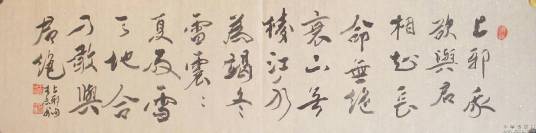 上邪我
欲與君
相知長
命無絕
衰山無
棱江水
為竭冬
雷震々
夏雨雪
天地合
乃敢與
君絕